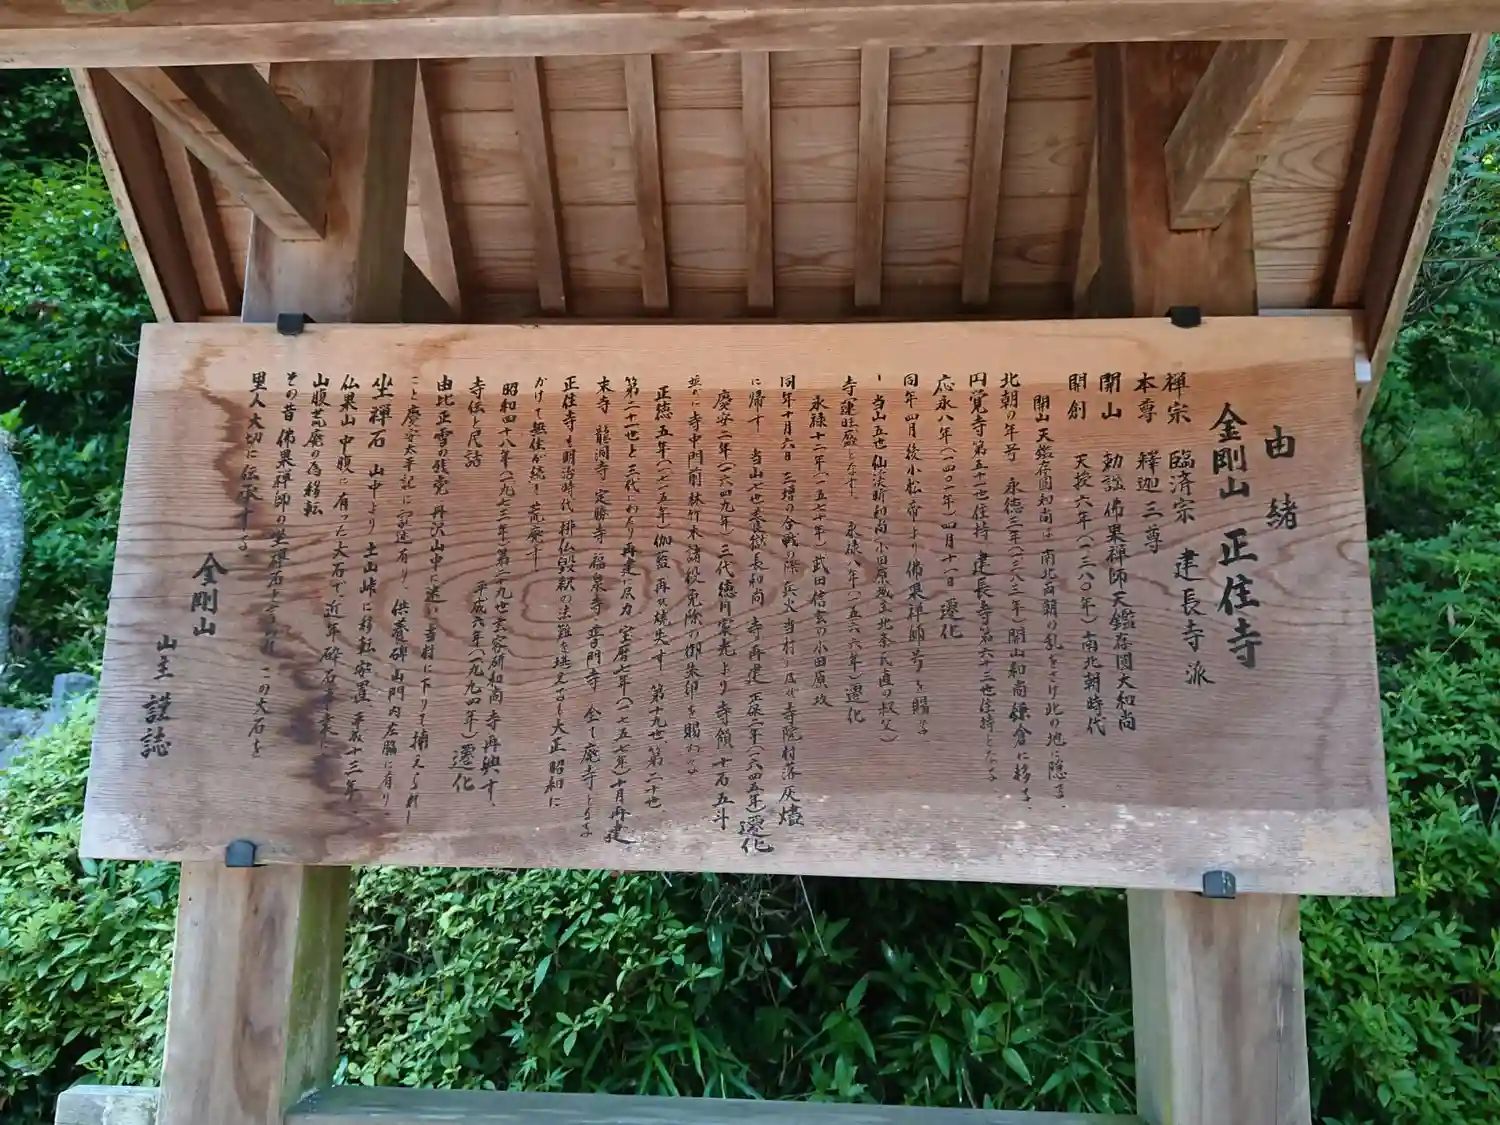 由緒
金剛山 正住寺
禅宗 臨済宗 建長寺派
本尊 釋迦三尊
開山 勅諡佛果禅師天鑑存圓大和尚
開創 天授六年(一三八〇年)南北朝時代
開山天鑑存圓和尚は南北両朝の乱をさけ北の地に隠る、
北朝の年号 永徳三年(一三八三年)開山和尚鎌倉に移る、
円覚寺第五十一世住持 建長寺第六十三世住持となる
応永八年(一四〇一年)四月十一日遷化
同年四月後小松帝より佛果禅師号を賜る
当山五世 仙渓昕和尚(小田原城主北条氏直の叔父)
寺運旺盛となす。 永禄八年(一五六六年)遷化
永禄十二年(一五七〇年)武田信玄の小田原攻
同年十月六日 三増の合戦の際 兵火当村に及び寺院村落灰燼
に帰す 当山七世 長和尚 寺再建 正保二年(一六四五年)遷化
慶安二年(一六四九年)三代徳川家光より寺領十石五斗
並びに寺中門前林竹木諸役免除の御朱印を賜わる
正徳五年(一七一五年)伽藍再び焼失す 第十九世第二十世
第二十一世と三代にわたり再建に尽力 宝暦七年(一七五七年)十月再建
末寺 龍洞寺 定勝寺 福泉寺 普門寺 全て廃寺となる
正住寺も明治時代 排仏毀釈の法難を 大正昭和に
かけて無住が続き荒廃す
昭和四十八年(一九七三年)第二十九世玄容研和尚 寺再興す、
平成六年(一九九四年)遷化
寺伝と民話
由比正雪の残党 丹沢山中に迷い当村に下りて捕えられし
こと慶安太平記に記述有り、供養碑山門内左脇に有り、
坐禅石 山中より土山峠に移転安置 平成十三年、
仏果山中腹に有った大石で近年砕石事業に
山腹荒廃の為移転
その昔佛果禅師の坐禅石と言われ この大石を
里人大切に伝承する
金剛山
山主 謹誌